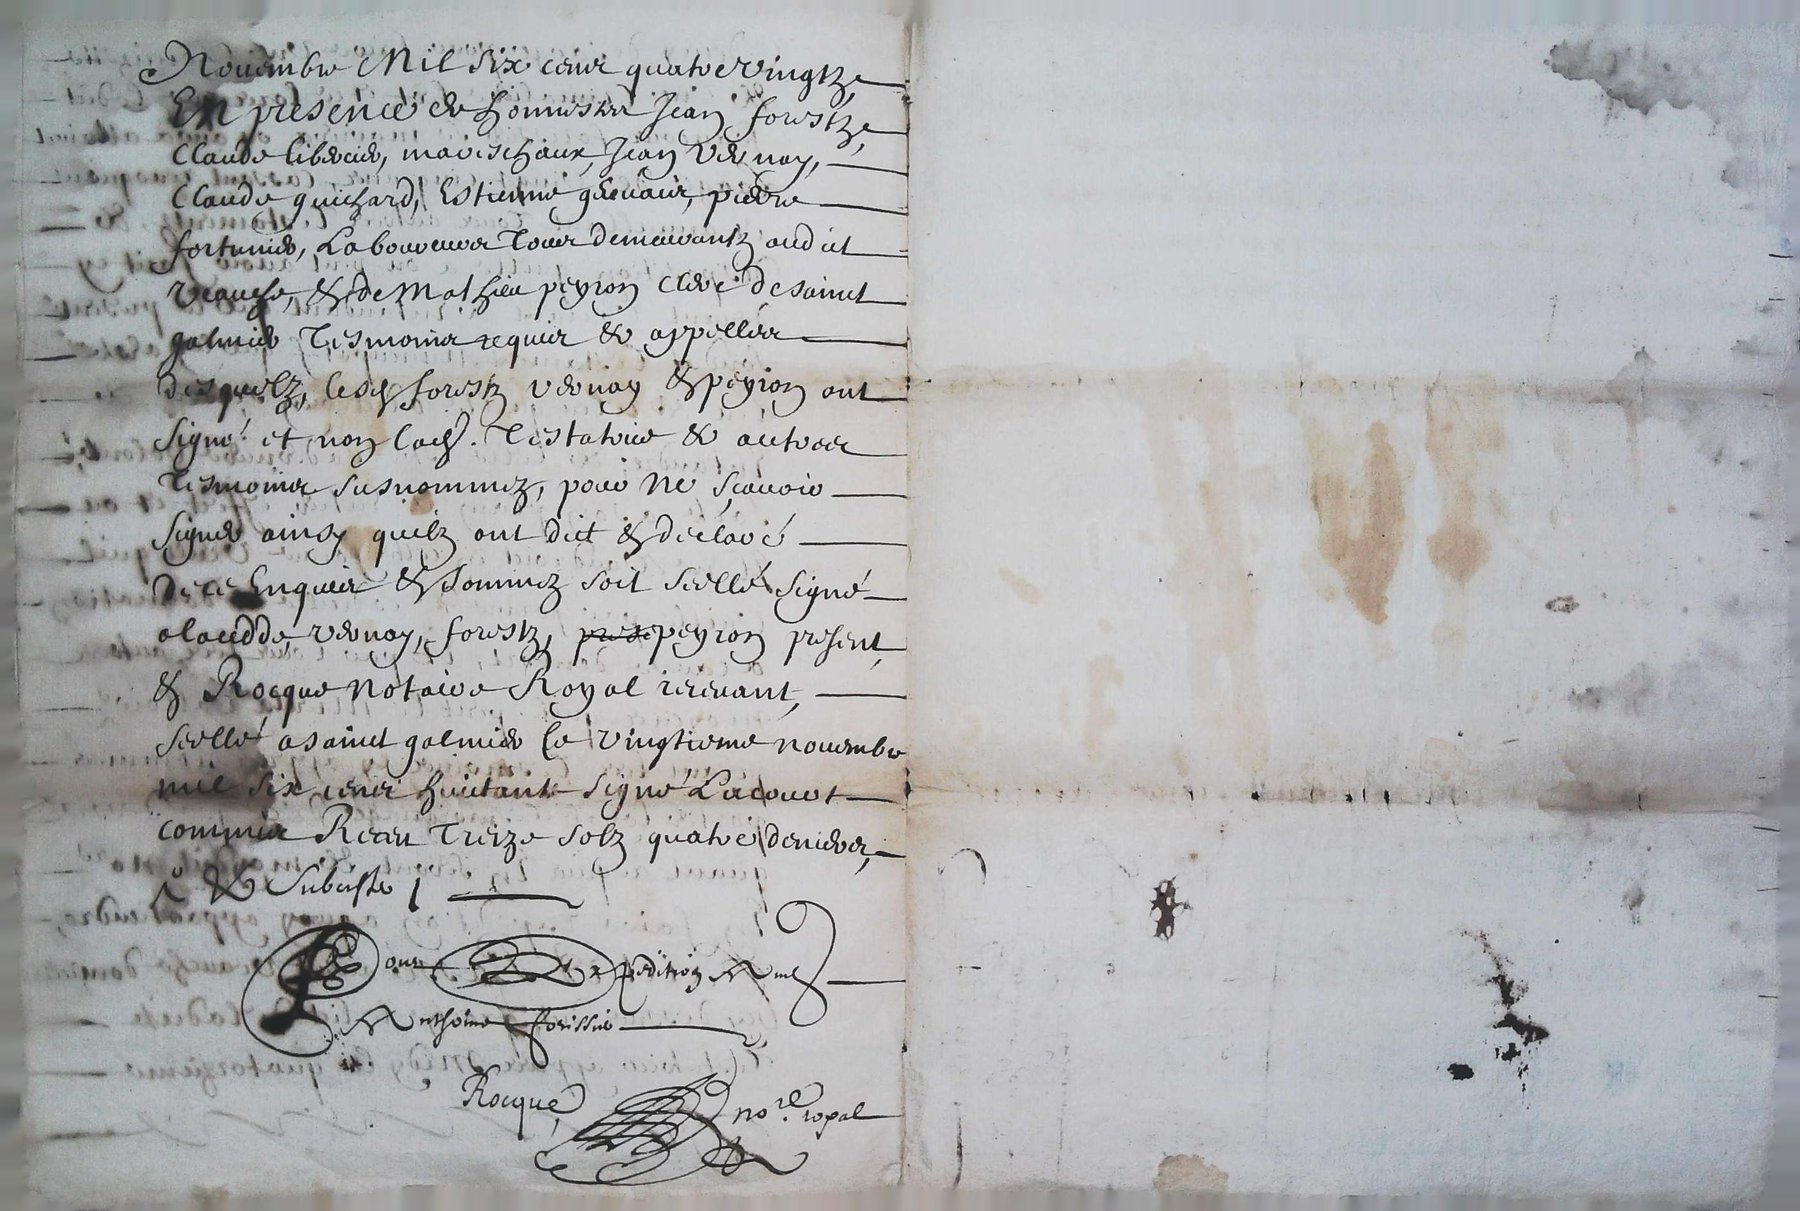 Novembre Mil six cens quatre vingtz,
En presence de honnestes Jean forestz,
Claude liberier, mareschaux, Jean vernay,
Claude guichard, Estienne gervais, pierre
fortunier, Laboureurs Tous demeurantz audit
veauche, & de Mathieu peyron clerc de sainct
galmier Tesmoins requis & appelles
desquelz, lesd forestz vernay & peyron ont
signé et non lad. Testatrice & autres
Tesmoins susnommez, pour Ne sçavoir
signer ainsy quilz ont dict & declaré
De ce Enquis & sommez soit seellé signé
a laeedde, vernay, forestz, peyron present,
& Rocque Notaire Royal recevant,
seellé a sainct galmier le vingtieme novembre
mil six cens huictante signé Lacouet
commis Receu Treize solz quatre deniers,
& Subiste
Pour Expedition Aud
Anthoine forissier
Rocque no.re royal